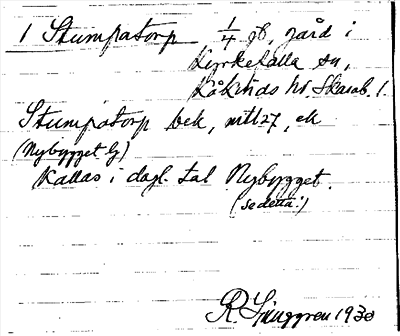 1 Stumpatorp 1/4 gd, gård i
Lyrkefalla sn,
Kåkinds hd. Skarab. l.
Stumpatorp bek,
(Nybygget bj)
Kallas i dagl. tal Nybygget.
(se detta!)
R. Ljunggren 1930